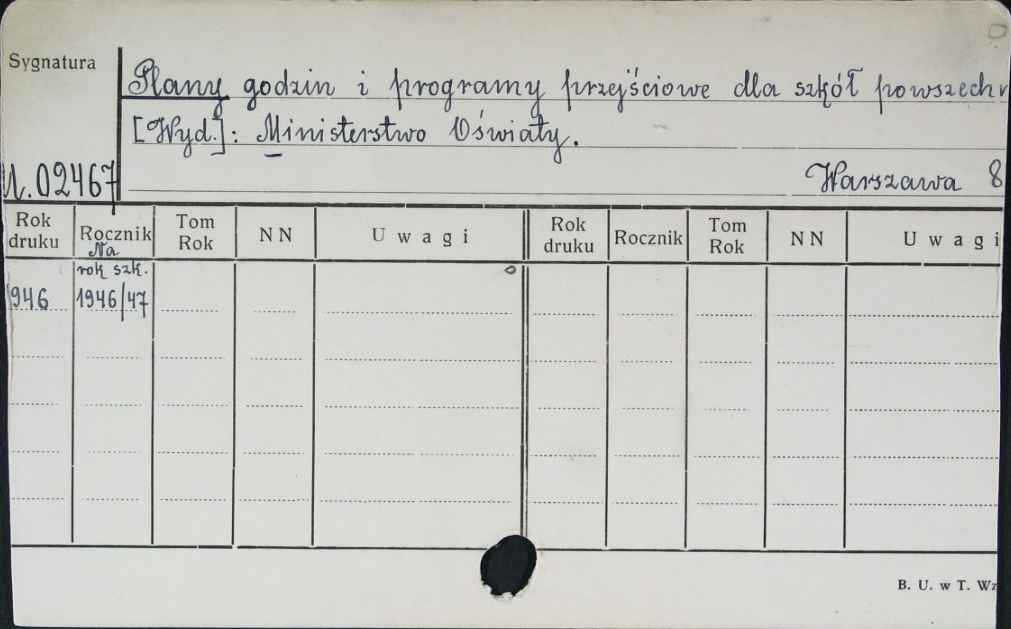 Sygnatura
Plany godzin i programy przejściowe dla szkół powszechn
[Wyd.]: Ministerstwo Oświaty.
U.02467
Warszawa 8
Rok druku Rocznik Tom Rok NN Uwagi Rok druku Rocznik Tom Rok NN Uwagi
Na
rok szk.
946 1946/47
B. U. w T. Wz